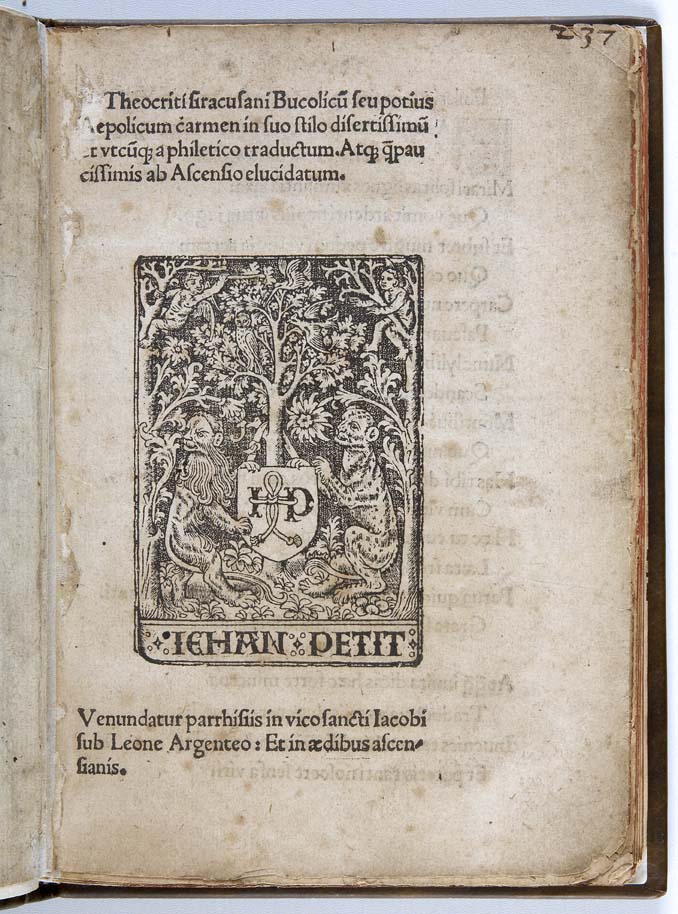 237
Theocriti siracusani Bucolicũ seu potius
Aepolicum carmen in suo stilo disertissimũ
Et vtcũq; a philetico traductum. Atq; q̃pau
cissimis ab Ascensio elucidatum.
HP
IEHAN PETIT
Venundatur parrhisiis in vico sancti Iacobi
sub Leone Argenteo: Et in ædibus ascen-
sianis.